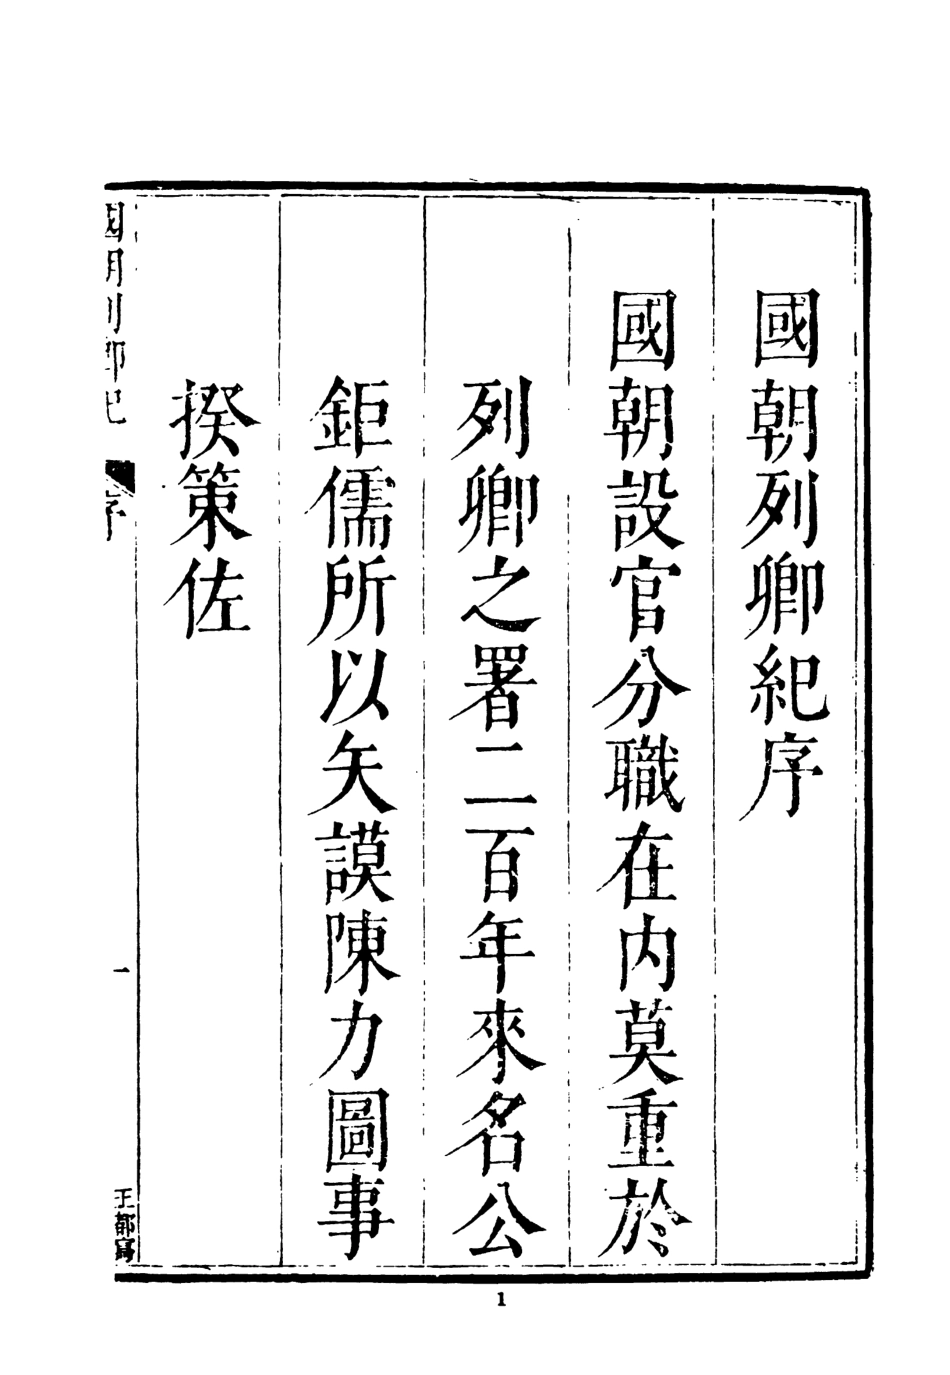 國朝列卿紀序
國朝設官分職在内莫重於
列卿之署二百年來名公
鉅儒所以矢謨陳力圖事
揆策佐
國朝列卿紀
序
一
王都寫
1